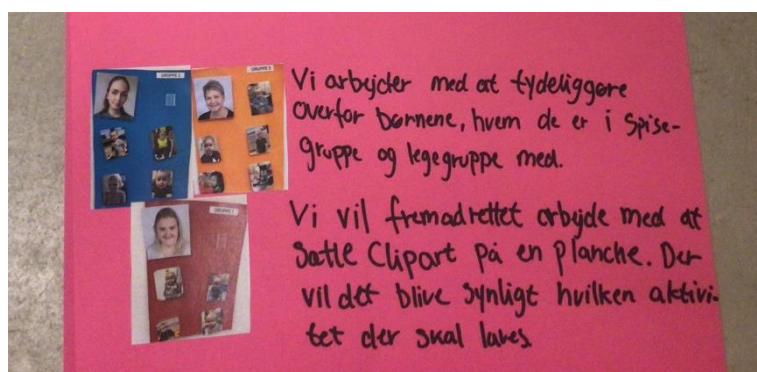 GRUPPE 2
GRUPPE 3
GRUPPE 1
Vi arbejder med at tydeliggøre
overfor børnene, hvem de er i spise-
gruppe og legegruppe med.
Vi vil fremadrettet arbejde med at
sætte Clipart på en planche. Der
vil det blive synligt hvilken aktivi-
tet der skal laves